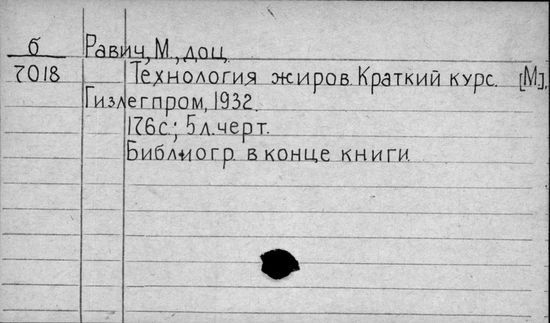 б
7018
Равич, М., доц.
Технология жиров. Краткий курс. [М],
Гизлегпром, 1932.
176с.; 5 л.черт.
Библиогр. в конце книги.